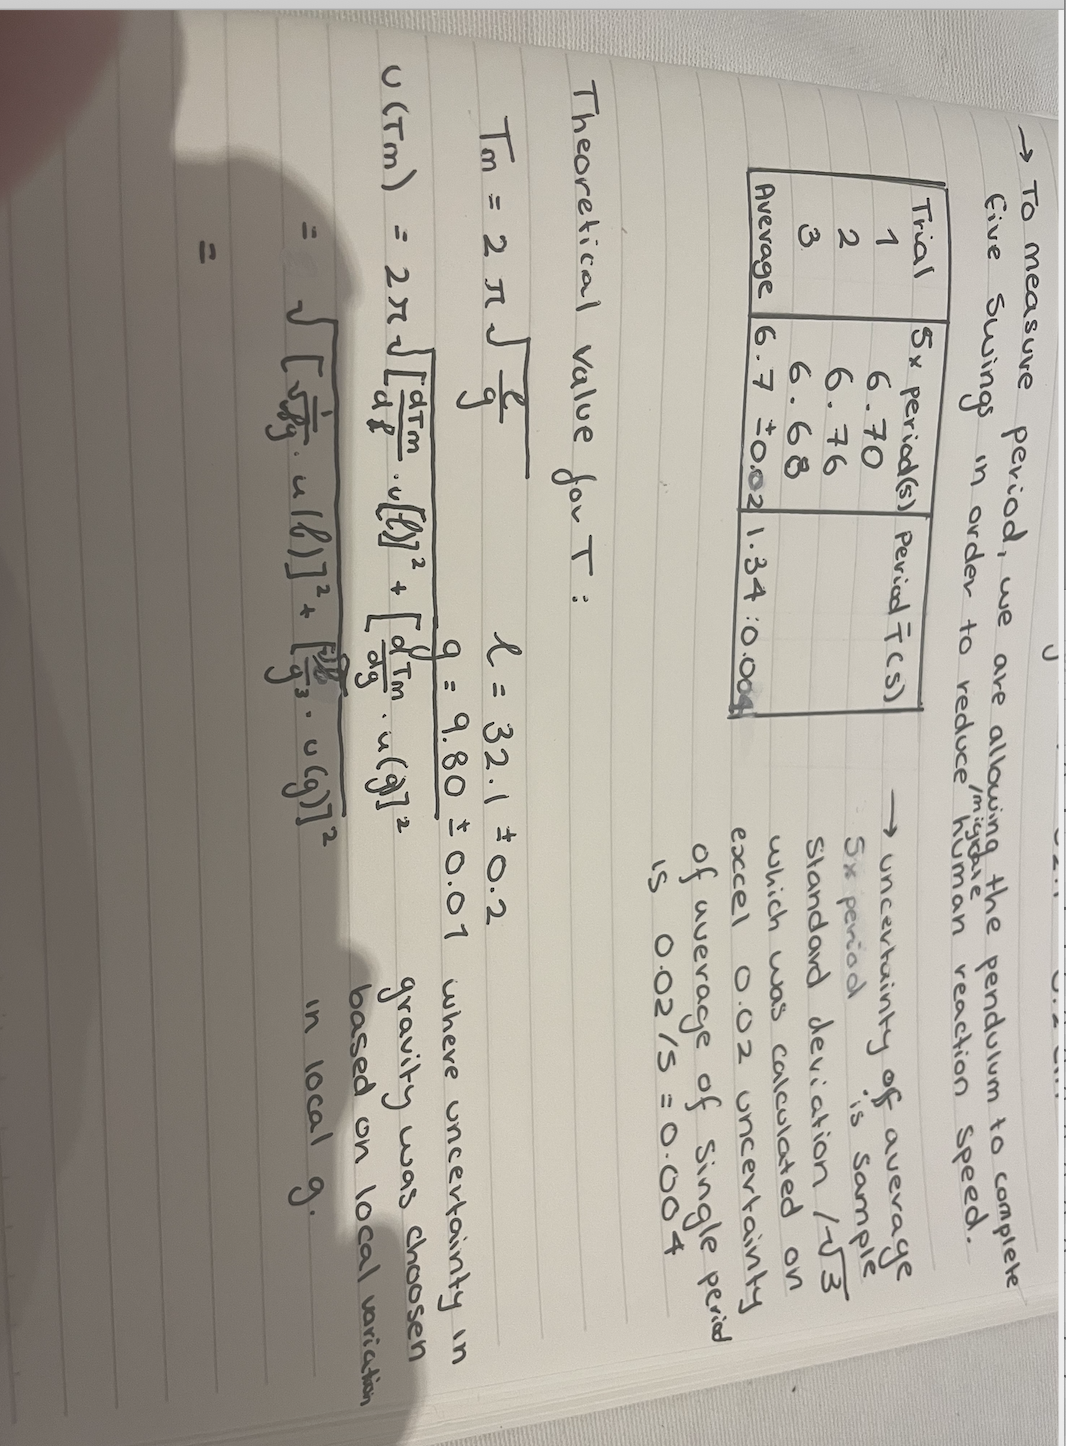 → To measure period, we are allowing the pendulum to complete
five swings in order to reduce /migate human reaction speed.
Trial 5x period(s) Period T̄ (s)
1 6.70
2 6.76
3 6.68
Average 6.7 ±0.02 1.34 :0.004
→ uncertainty of average
5x period is sample
standard deviation /√3
which was calculated on
excel 0.02 uncertainty
of average of single period
is 0.02/5 = 0.004
Theoretical value for T :
Tm = 2 π √(l/g) l = 32.1 ±0.2
g = 9.80 ± 0.01 where uncertainty in
gravity was choosen
based on local variation
in local g.
u(Tm) = 2π √([dTm/dl · u(l)]² + [dTm/dg · u(g)]²
= √([1/√lg · u(l)]² + [/g³ · u(g)]²
=